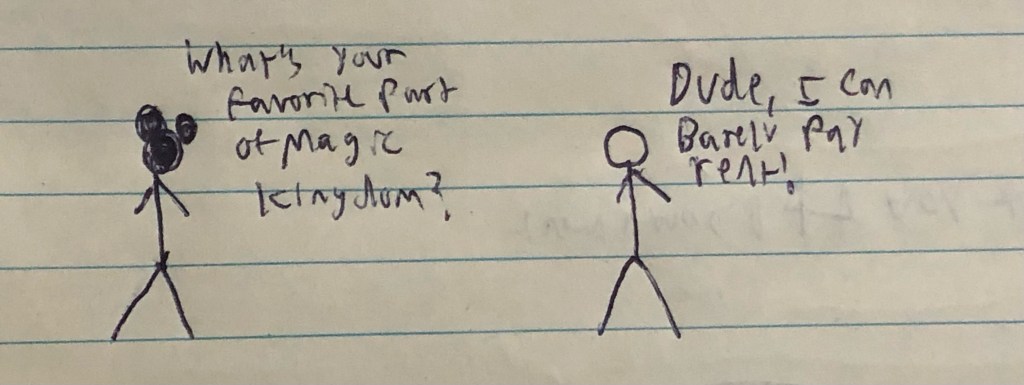 What's your
favorite Part
of Magic
kingdom?
Dude, I can
Barely Pay
rent!